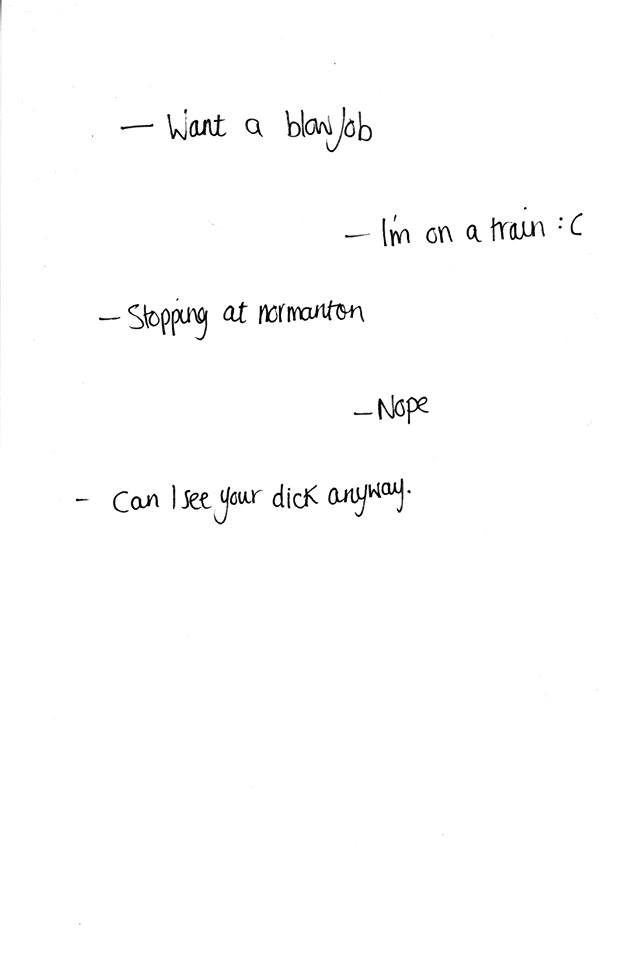 — Want a blowJob
— I'm on a train :C
— Stopping at normanton
— Nope
- Can I see your dick anyway.